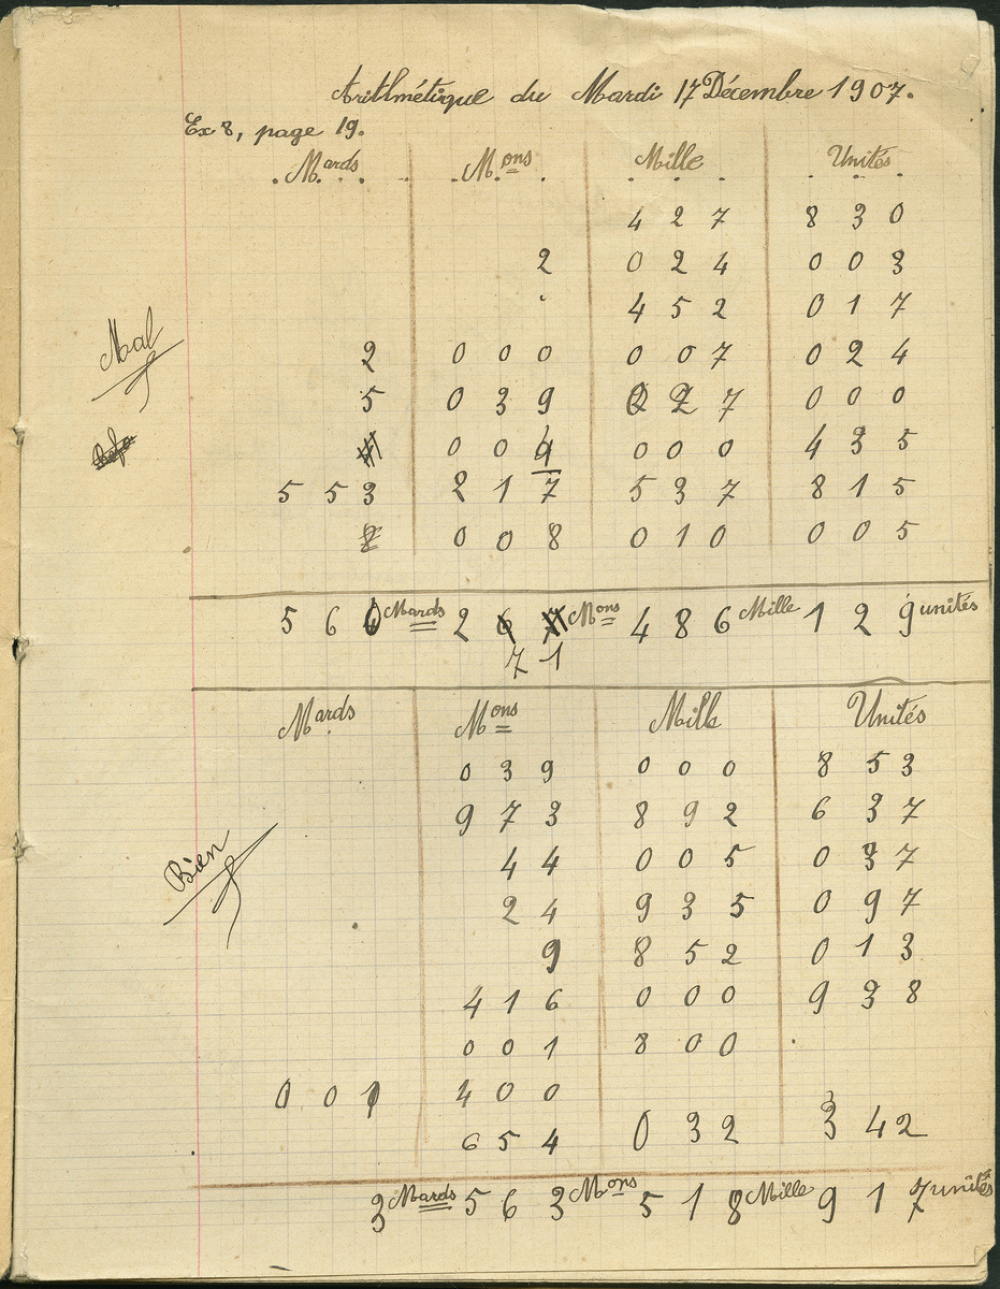 Arithmétique du Mardi 17 Décembre 1907.
Ex 8, page 19.
Mards Mons Mille Unités
427 830
2 024 003
452 017
Mal
2 000 007 024
5 039 027 000
004 000 435
553 217 537 815
008 010 005
560 Mards 2 Mons 486 Mille 129 unités
71
Mards Mons Mille Unités
039 000 853
973 892 637
44 005 037
Bien
24 935 097
9 852 013
416 000 938
001 800
001 400
654 032 342
3 Mards 563 Mons 518 Mille 917 unités